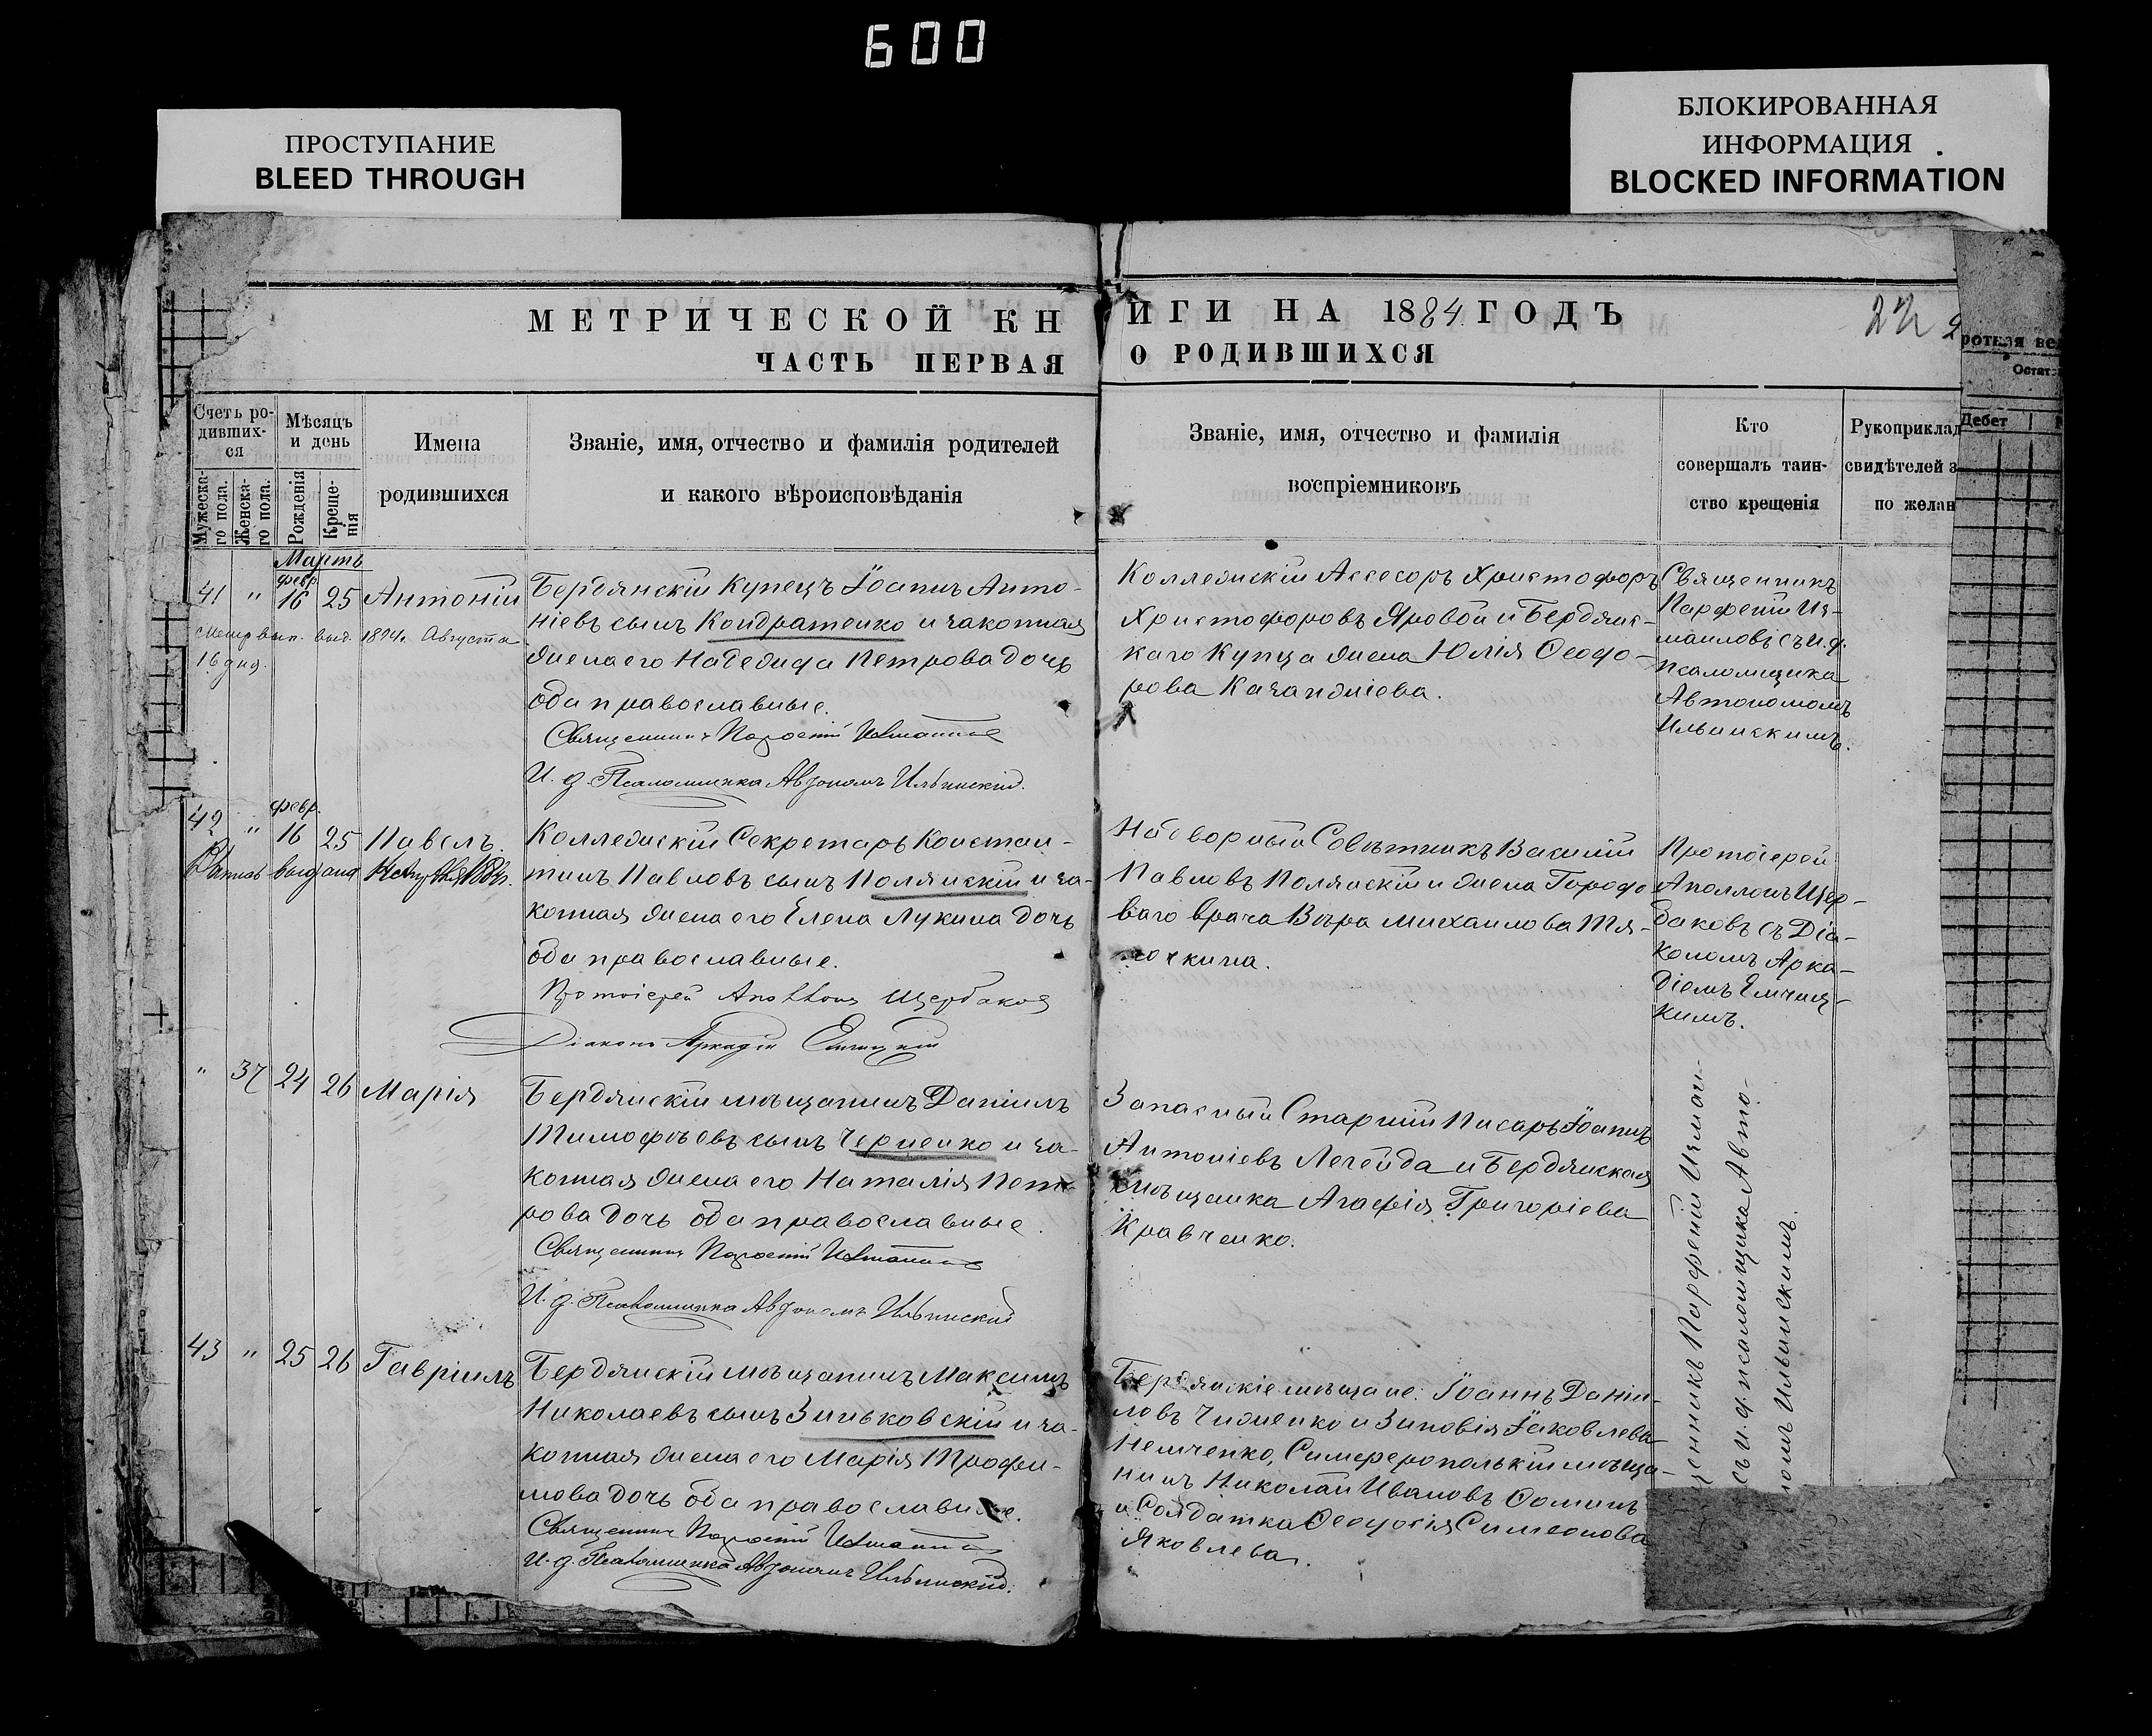 600
ПРОСТУПАНИЕ
BLEED THROUGH
БЛОКИРОВАННАЯ
ИНФОРМАЦИЯ
BLOCKED INFORMATION
МЕТРИЧЕСКОЙ КН
ИГИ НА 1884 ГОДЪ
ЧАСТЬ ПЕРВАЯ
О РОДИВШИХСЯ
Остат
Дебет
Счетъ ро-
дивших-
ся
Мужеска-
го пола.
Женска-
го пола.
Мѣсяцъ
и день
Рожденія
Креще-
нія
Имена
родившихся
Званіе, имя, отчество и фамилія родителей
и какого вѣроисповѣданія
Званіе, имя, отчество и фамилія
воспріемниковъ
Кто
совершалъ таин-
ство крещенія
Рукоприклад
свидѣтелей з
по желан
Мартъ
февр.
41 " 16 25 Антоній
выд. 1894 Августа
16 дня.
Бердянскій Купецъ Іоаннъ Анто-
ніевъ сынъ Кондратенко и законная
жена его Надежда Петрова дочь
оба православные.
Священникъ Парфеній Измаиловъ
И. д. Псаломщика Автономъ Ильинскій.
Коллежскій Ассесоръ Христофоръ
Христофоровъ Яровой и Бердянс-
каго Купца жена Юлія Ѳеодо-
рова Казанджіева.
Священникъ
Парфеній Из-
маиловъ съ и.д.
псаломщика
Автономомъ
Ильинскимъ.
февр.
42 " 16 25 Павелъ.
Коллежскій Секретарь Констан-
тинъ Павловъ сынъ Полянскій и за-
конная жена его Елена Лукина дочь
оба православные.
Протоіерей Аполлонъ Щербаковъ
Діаконъ Аркадій Емчицкій
Надворный Совѣтникъ Василій
Павловъ Полянскій и жена Городо
ваго врача Вѣра Михаилова Тя-
Протоіерей
Аполлонъ Щер-
баковъ съ Діа-
кономъ Арка-
діемъ Емчиц-
кимъ.
" 37 24 26 Марія
Бердянскій мѣщанинъ Даніилъ
Тимофѣевъ сынъ Черненко и за-
конная жена его Наталія Пет-
рова дочь оба православные.
Священникъ Парфеній Измаиловъ
И. д. Псаломщика Автономъ Ильинскій
Запасный Старшій Писарь Іоаннъ
Антоніевъ Легейда и Бердянская
мѣщанка Агафія Григоріева
Кравченко.
43 " 25 26 Гавріилъ
Бердянскій мѣщанинъ Максимъ
Николаевъ сынъ Зиньковскій и за-
конная жена его Марія Трофи-
мова дочь оба православные.
Священникъ Парфеній Измаиловъ
И. д. Псаломщика Автономъ Ильинскій.
Бердянскіе мѣщане: Іоаннъ Даніи-
ловъ Чижченко и Зиновія Іаковлева
Немченко, Симферопольскій мѣща-
нинъ Николай Ивановъ Ѳоминъ
и Солдатка Ѳеодосія Симеонова
Яковлева.
щенникъ Парфеній Измаи-
съ и.д. псаломщика Авто-
номъ Ильинскимъ.